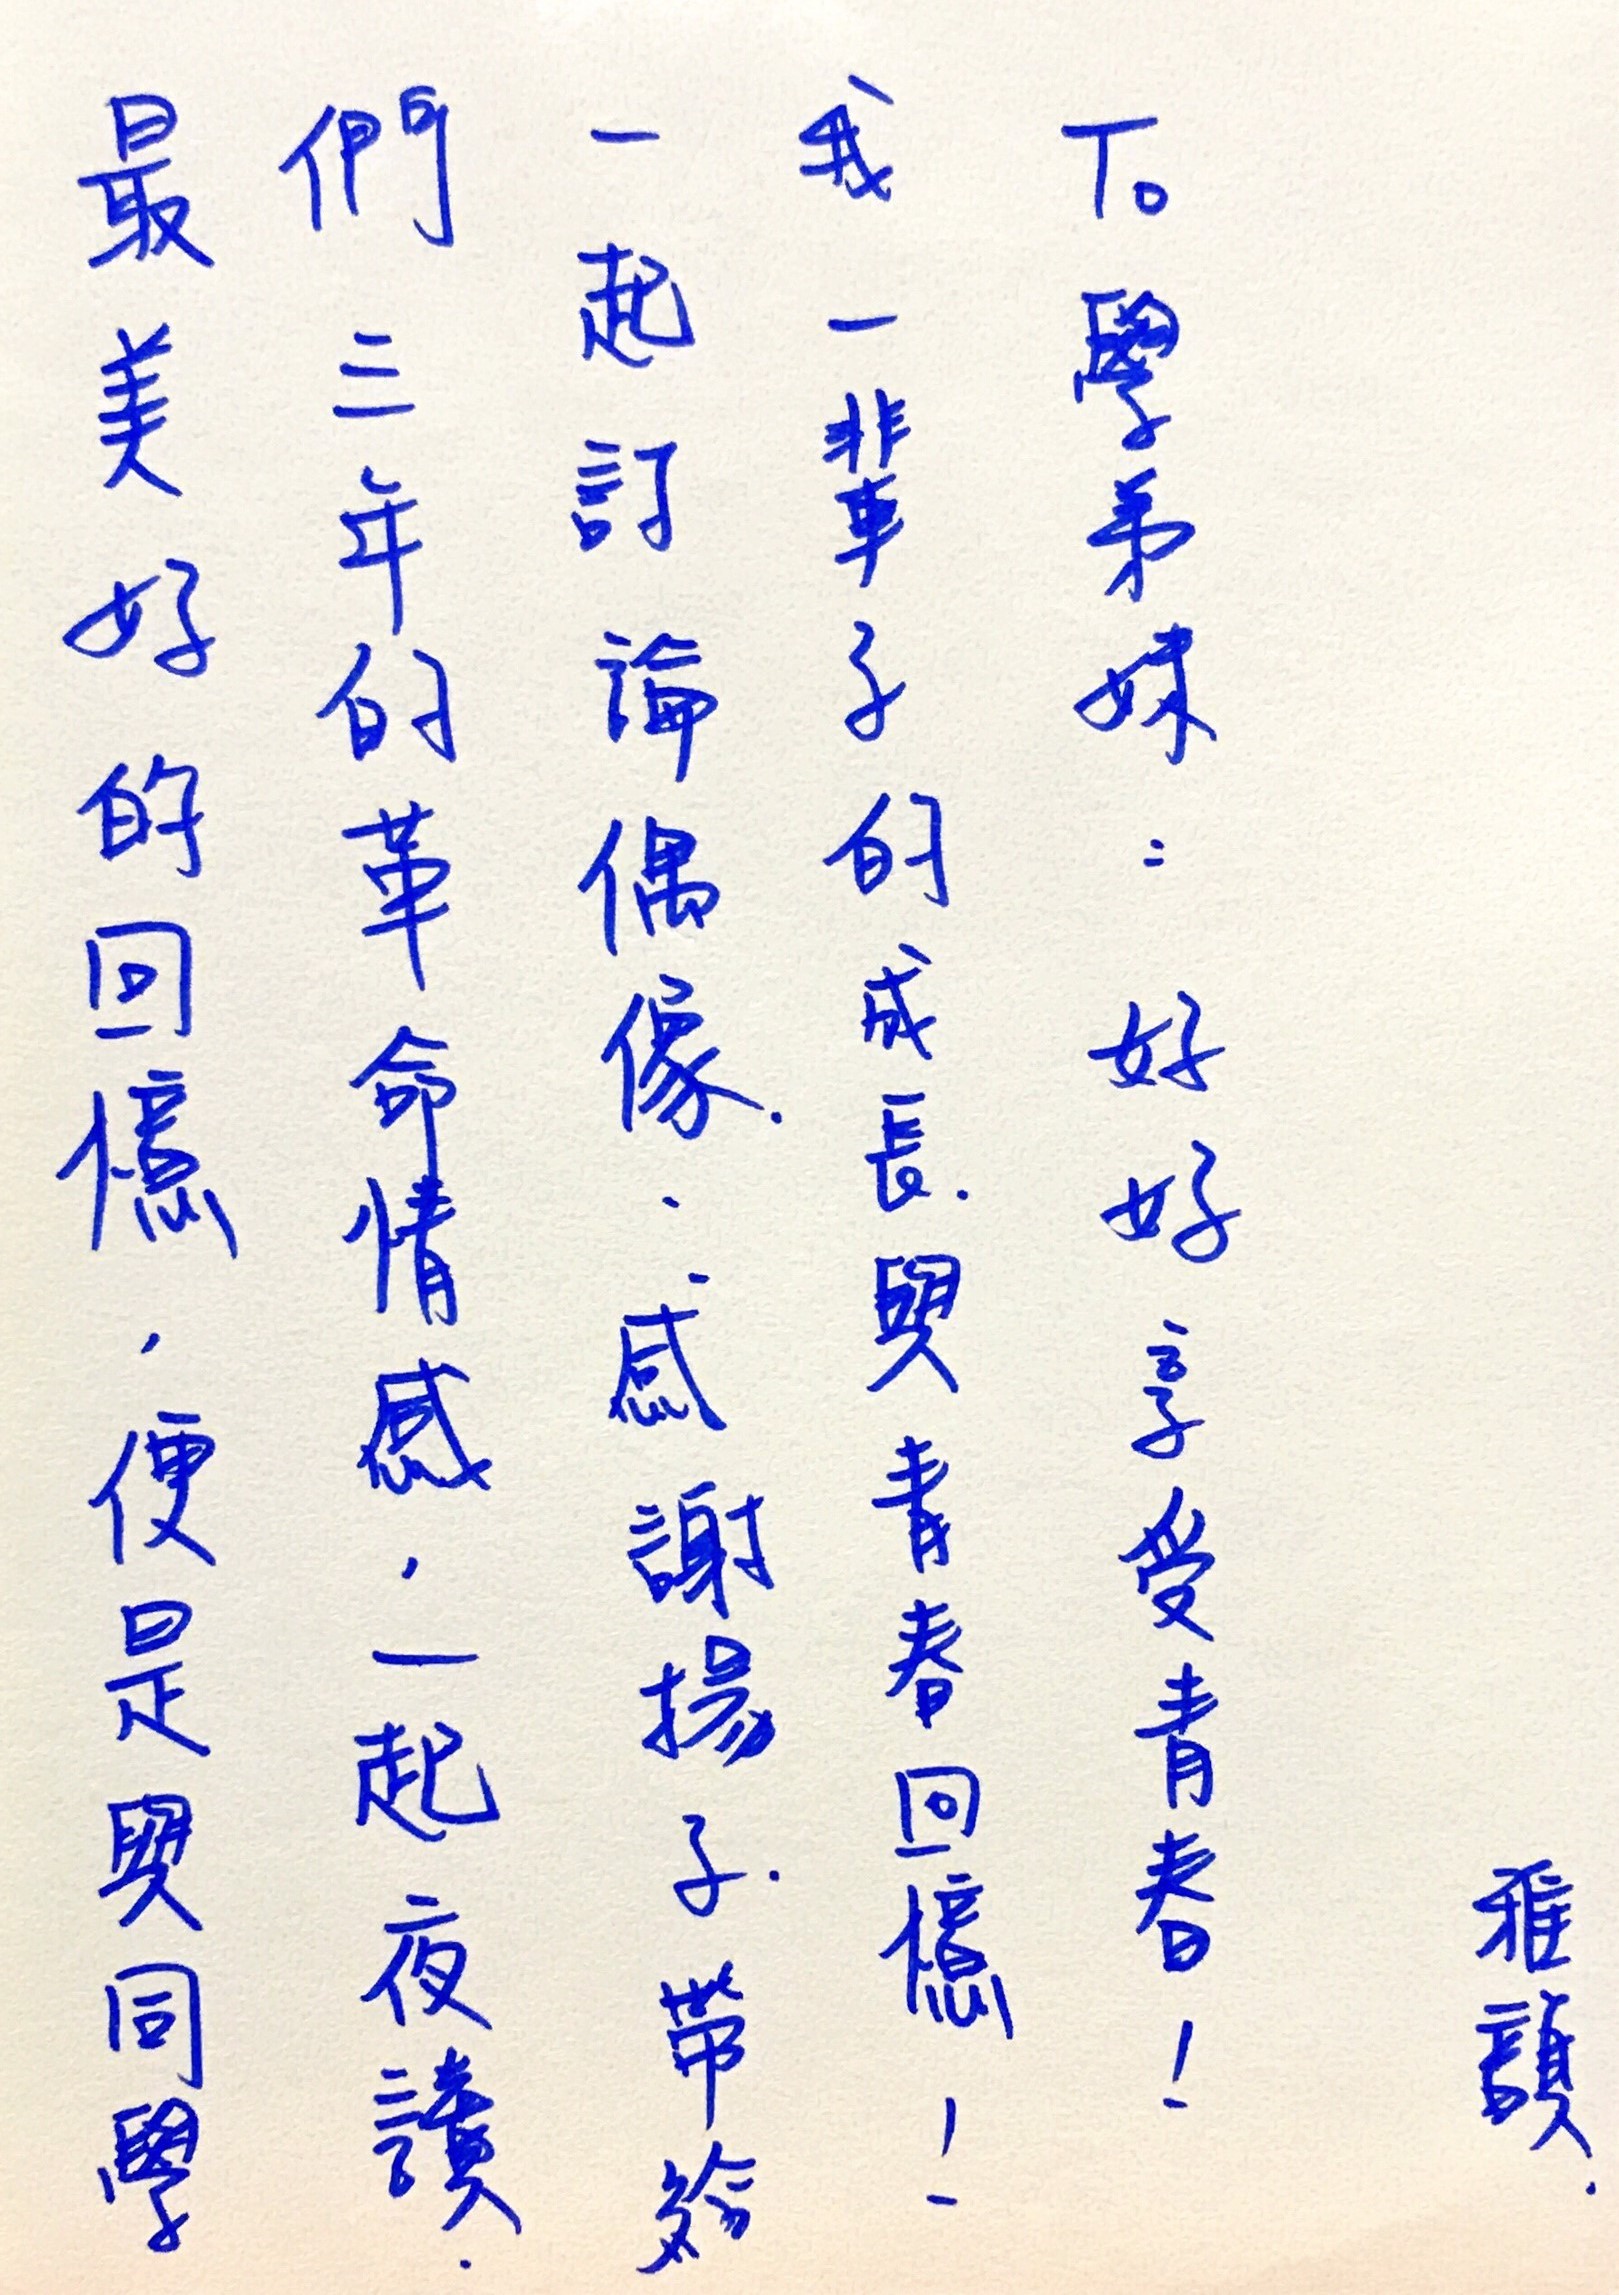 最美好的回憶，便是與同學
們三年的革命情感，一起夜讀.
一起訂論偶像...感謝揚子.帶給
我一輩子的成長.與青春回憶！
To學弟妹：好好享受青春！
雅韻.